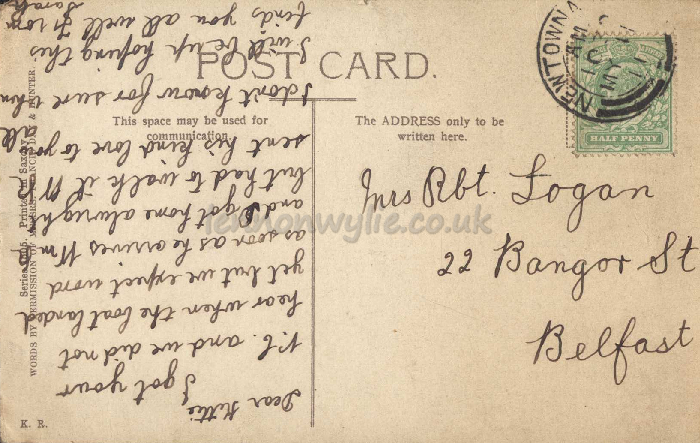 POST CARD.
This space may be used for
communication.
The ADDRESS only to be
written here.
HALF PENNY
NEWTOWNA
AM
Mrs Rbt. Logan
22 Bangor St
Belfast
Dear Kittie
I got your
P.C. and we did not
hear when the boat landed
yet but we expect word
as soon as he arrives Wm
and I got home alwright
but had to walk it Wm
sent his kind love to you all
I don't know for sure when
I will be up hoping this
finds you all well From
Sarah
Printed in Saxony.
WORDS BY PERMISSION OF MESSRS FRANCIS, DAY & HUNTER
K. R.
lennonwylie.co.uk